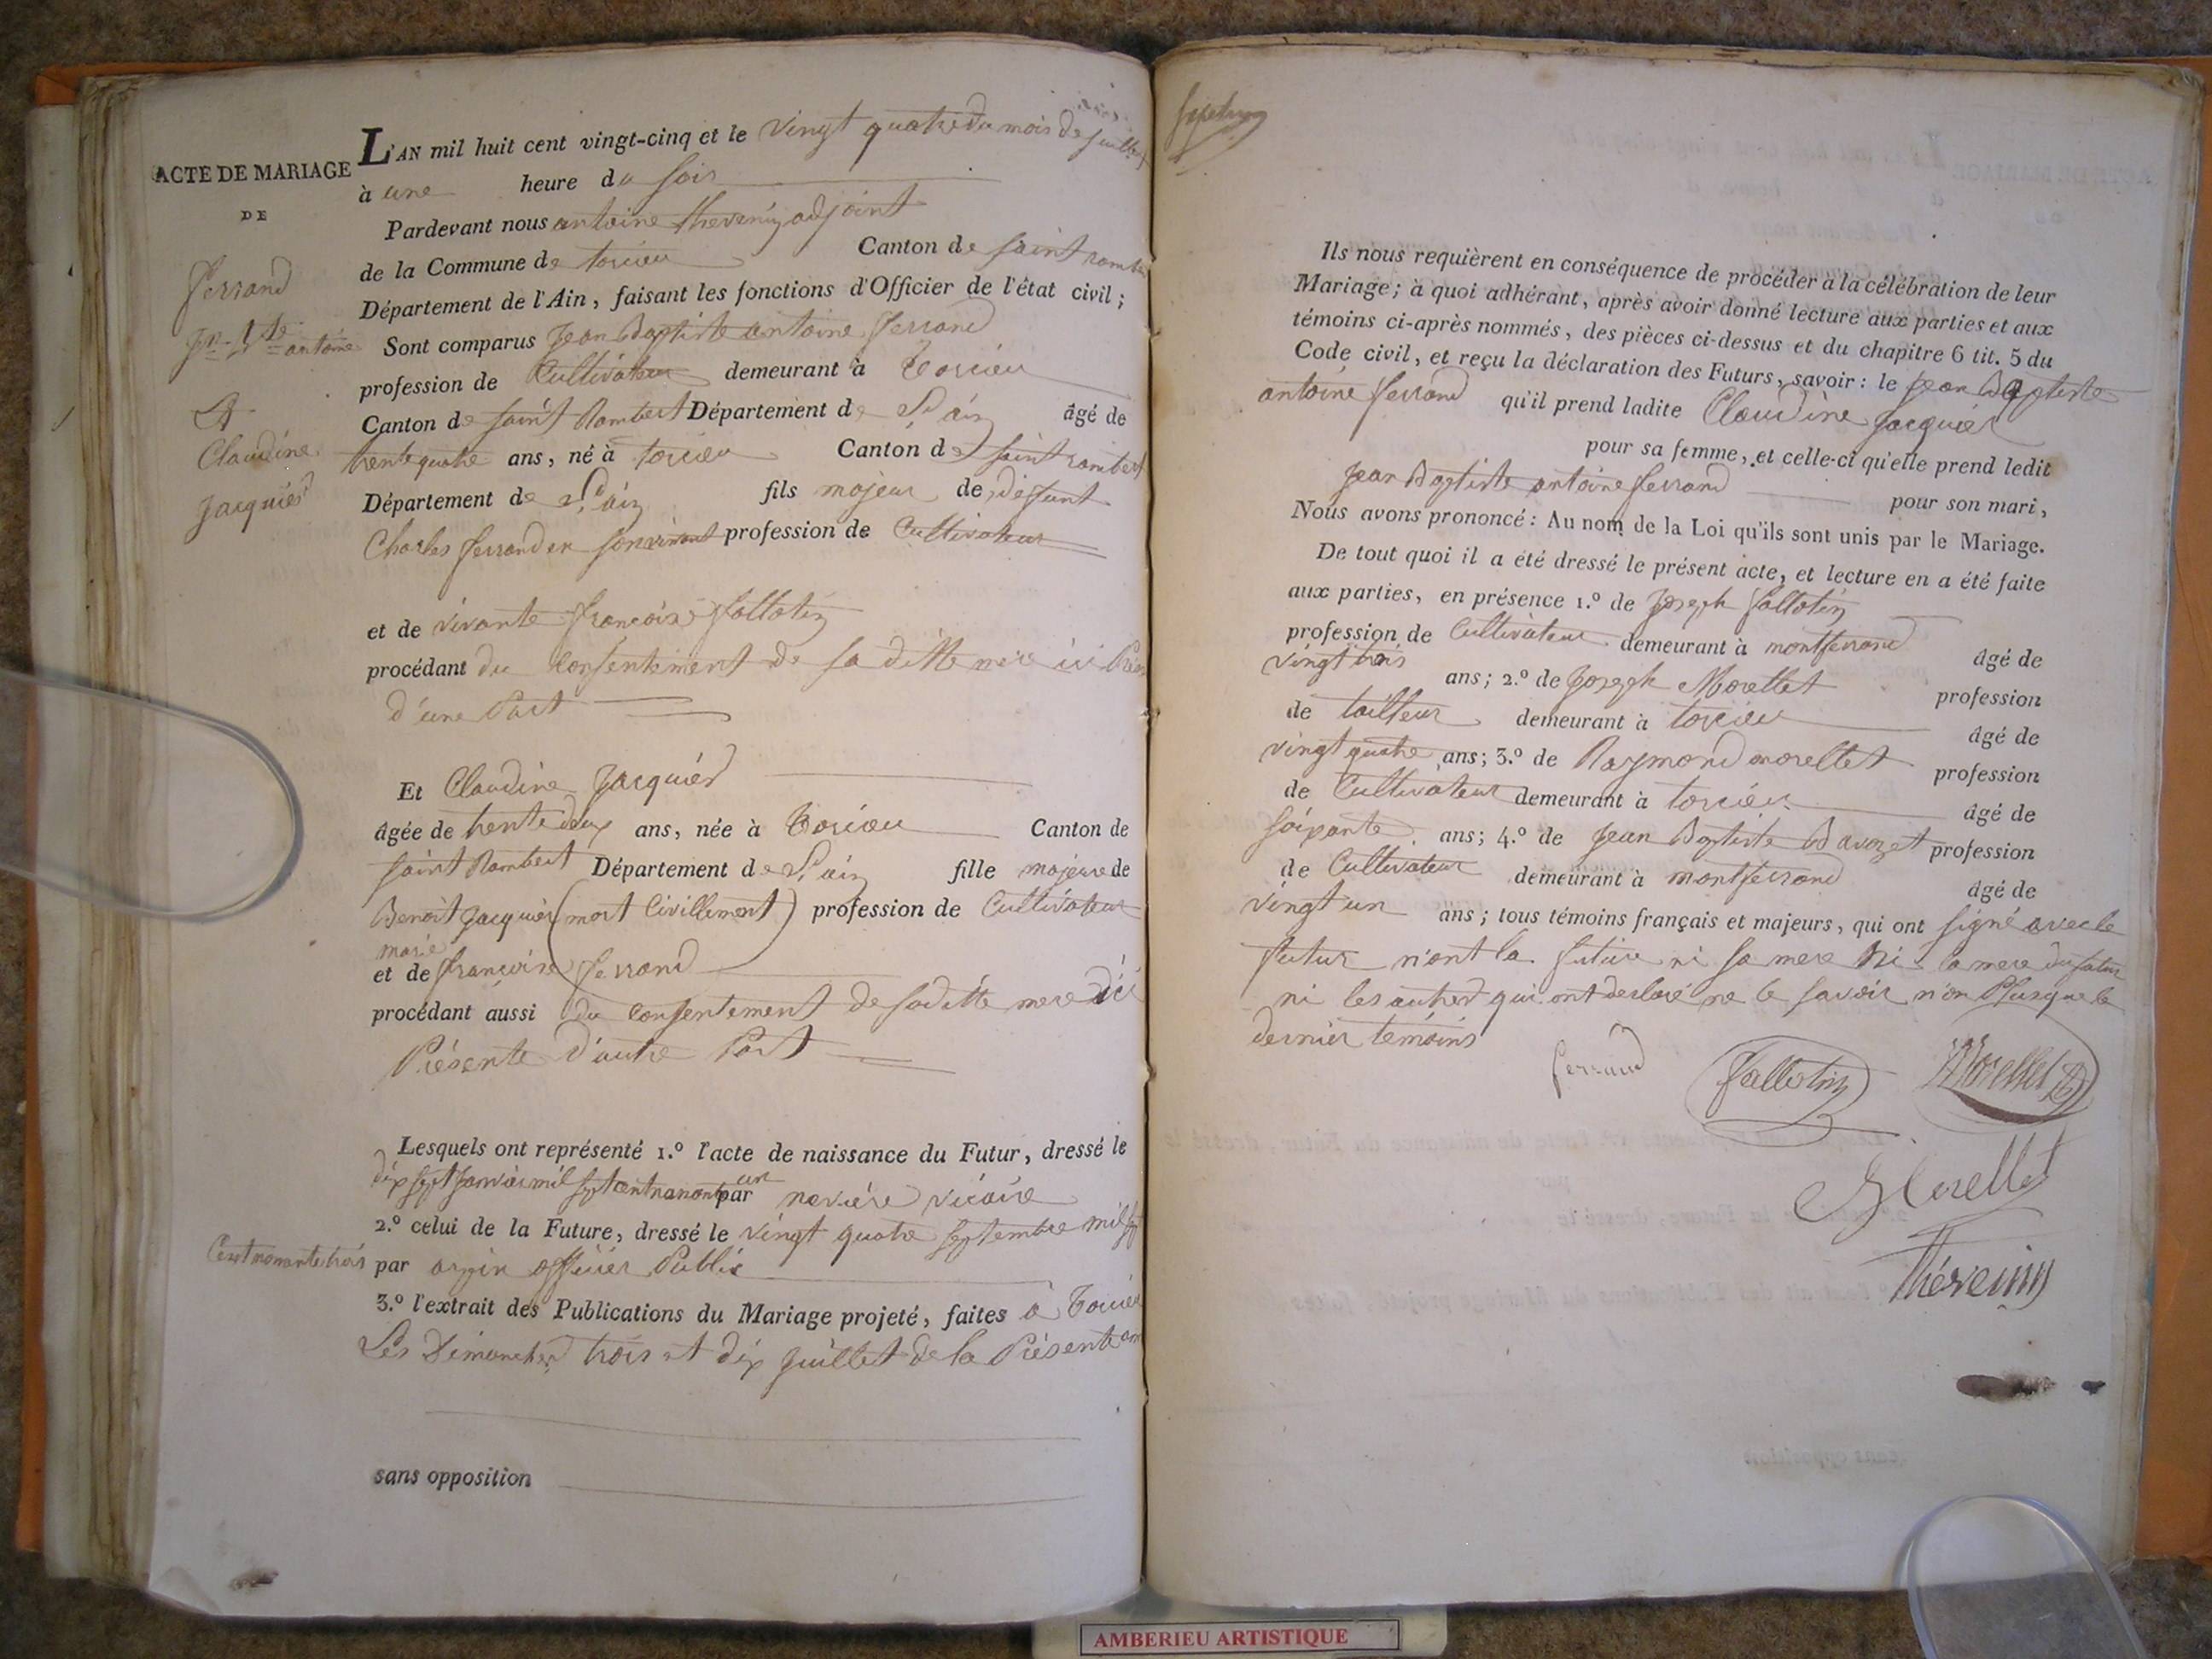 ACTE DE MARIAGE
DE
ferrand
Jn. Bte. antoine
Et
Claudine
Jacquier
L'AN mil huit cent vingt-cinq et le vingt quatre du mois de juillet
à une heure du soir
Pardevant nous antoine thevenin adjoint
de la Commune de torcieu Canton de saint rambert
Département de l'Ain, faisant les fonctions d'Officier de l'état civil;
Sont comparus Jean Baptiste antoine ferrand
profession de Cultivateur demeurant à torcieu
Canton de saint Rambert Département de L'ain âgé de
trente quatre ans, né à torcieu Canton de saint rambert
Département de L'ain fils majeur de défunt
Charles ferrand en son vivant profession de Cultivateur
et de vivante françoise fallotin
procédant du consentement de sa ditte mere ici
d'une Part
Et Claudine Jacquier
âgée de trente deux ans, née à torcieu Canton de
saint Rambert Département de L'ain fille majeure de
Benoit Jacquier (mort Civillement) profession de Cultivateur
marié
et de françoise ferrand
procédant aussi du consentement de saditte mere ici
Présente d'autre Part
Lesquels ont représenté 1.º l'acte de naissance du Futur, dressé le
dix sept janvier mil sept cent nonante un par vicaire
2.º celui de la Future, dressé le vingt quatre septembre mil sept
Cent nonante trois par officier Public
3.º l'extrait des Publications du Mariage projeté, faites à torcieu
Les Dimanches trois et dix juillet de la Présente
sans opposition
Ils nous requièrent en conséquence de procéder à la célébration de leur
Mariage; à quoi adhérant, après avoir donné lecture aux parties et aux
témoins ci-après nommés, des pièces ci-dessus et du chapitre 6 tit. 5 du
Code civil, et reçu la déclaration des Futurs, savoir: le jean Baptiste
antoine ferrand qu'il prend ladite Claudine jacquier
pour sa femme, et celle-ci qu'elle prend ledit
jean Baptiste antoine ferrand pour son mari,
Nous avons prononcé: Au nom de la Loi qu'ils sont unis par le Mariage.
De tout quoi il a été dressé le présent acte, et lecture en a été faite
aux parties, en présence 1.º de Joseph fallotin
profession de Cultivateur demeurant à montferrand âgé de
vingt trois ans; 2.º de Joseph Morellet profession
de tailleur demeurant à torcieu âgé de
vingt quatre ans; 3.º de Raymond morellet profession
de Cultivateur demeurant à torcieu âgé de
soixante ans; 4.º de Jean Baptiste Bavozet profession
de Cultivateur demeurant à montferrand âgé de
vingt un ans; tous témoins français et majeurs, qui ont signé avec le
futur non la future ni sa mere Ni la mere du futur
ni les autres qui ont declaré ne le savoir non Plus que le
dernier temoins
ferrand
fallotin
Morellet
Morellet
Thévenin
AMBERIEU ARTISTIQUE